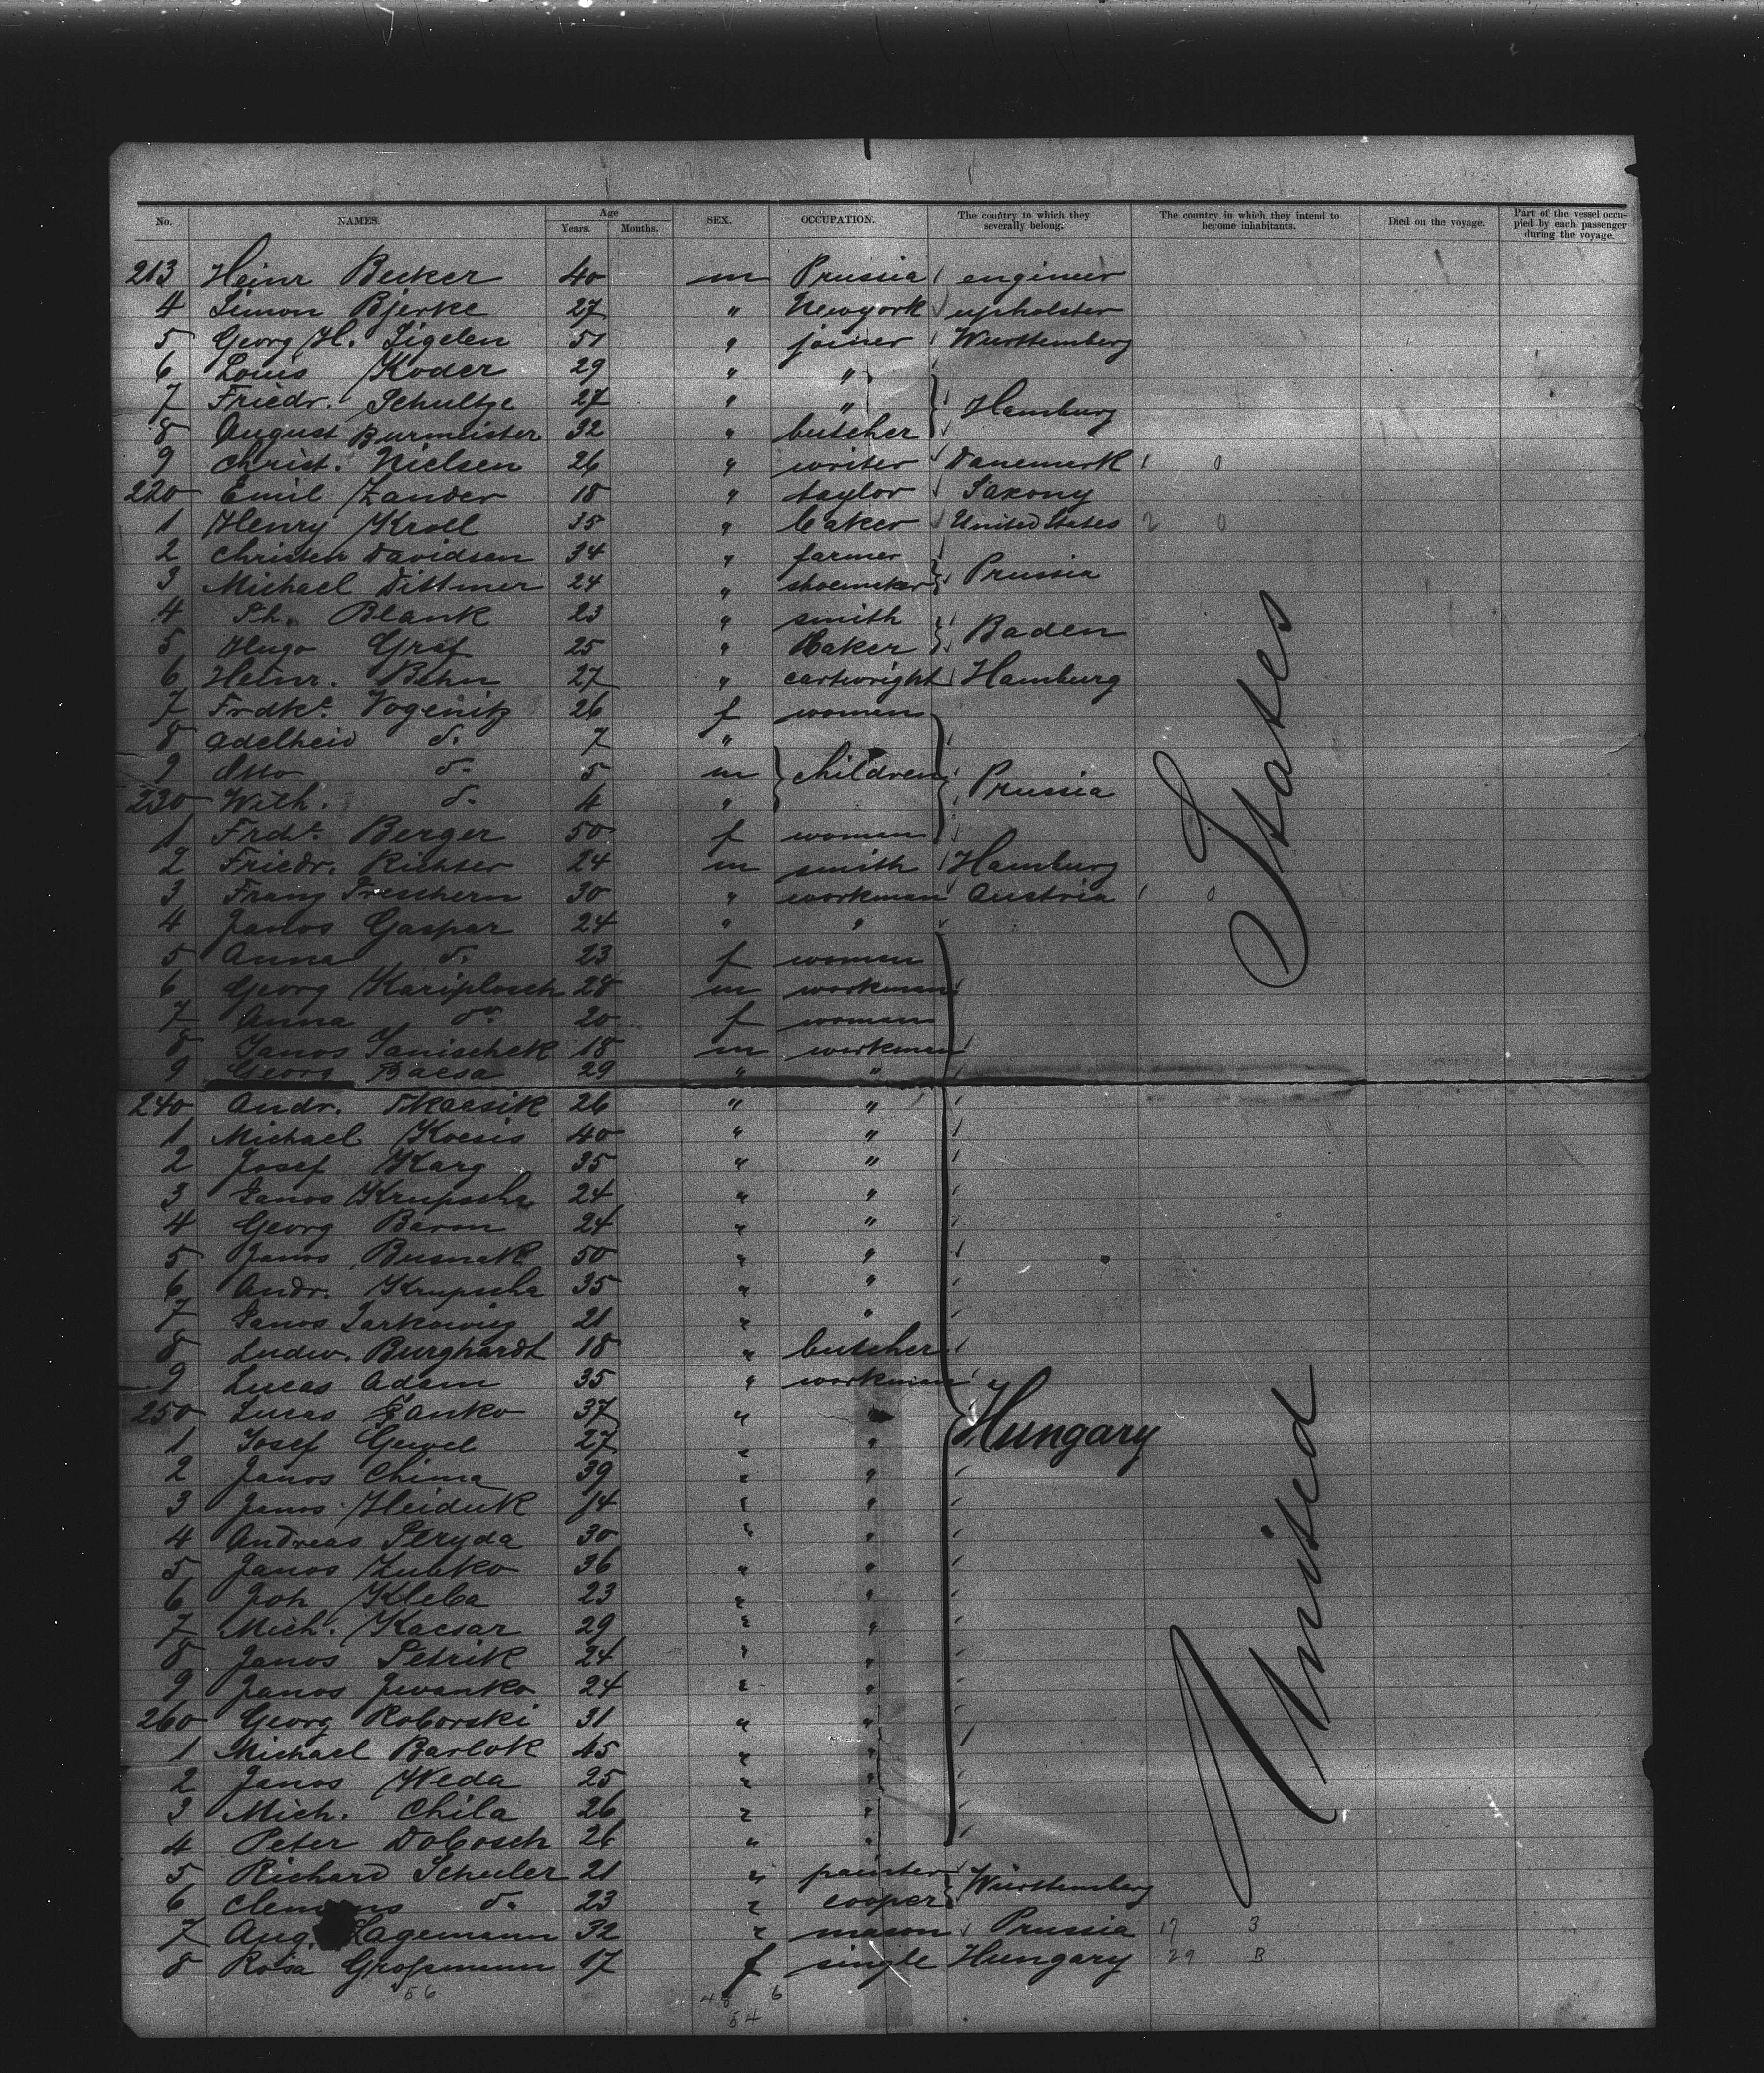 No. NAMES. Age Years. Months. SEX. OCCUPATION. The country to which they severally belong. The country in which they intend to become inhabitants. Died on the voyage. Part of the vessel occupied by each passenger during the voyage.
213 Heinr Becker 40 m Prussia engineer
4 Simon Bjerke 27 " Newyork upholster
5 Georg H. Sigelen 51 " joiner Württemberg
6 Louis Koder 29 " "
7 Friedr. Schultze 27 " " Hamburg
8 August Burmeister 32 " butcher
9 Christ. Nielsen 26 " writer Danemark 1 0
220 Emil Zander 18 " taylor Saxony
1 Henry Kroll 35 " baker United States 2 0
2 Christen Davidsen 34 " farmer
3 Michael Dittmer 24 " shoemaker Prussia
4 Ph. Blank 23 " smith
5 Hugo Graf 25 " Baker Baden
6 Heinr. Behn 27 " cartwright Hamburg
7 Frdke. 26 f women
8 Adelheid d. 7 "
9 Otto d. 5 m children Prussia
230 Wilh. d. 4 "
1 Frdke. Berger 50 f woman
2 Friedr. Richter 24 m smith Hamburg
3 Franz 30 " workman Austria 1 0
4 Janos Gaspar 24 " "
5 Anna d. 23 f women
6 Georg Kariplosch 28 m workman
7 Anna do. 20 f woman
8 Janos Janischek 18 m workman
9 Georg Bacsa 29 " "
240 Andr. Tkacsik 26 " "
1 Michael Kocsis 40 " "
2 Josef Karg 35 " "
3 Janos Krupscha 24 " "
4 Georg Baron 24 " "
5 Janos Busnak 50 " "
6 Andr. Krupscha 35 " "
7 Janos Jarkowicz 21 " "
8 Ludw. Burghardt 18 " butcher
9 Lucas Adam 35 " workman "
250 Lucas Janko 37 " " Hungary
1 Josef Gewel 27 " "
2 Janos Chima 39 " "
3 Janos Heiduk 14 " "
4 Andreas Peryda 30 " "
5 Janos Zubko 36 " "
6 Joh Kleba 23 " "
7 Mich. Kacsar 29 " "
8 Janos Petrik 24 " "
9 Janos Jwanko 24 " "
260 Georg Roborski 31 " "
1 Michael Barlok 45 " "
2 Janos Weda 25 " "
3 Mich. Chila 26 " "
4 Peter Dobosch 26 " "
5 Richard Schuler 21 " painter Württemberg
6 Clemens d. 23 " cooper
7 Aug. Lagemann 32 " mason Prussia 17 3
8 Rosa Großmann 17 f single Hungary 29 B
56 48 6
54
United States